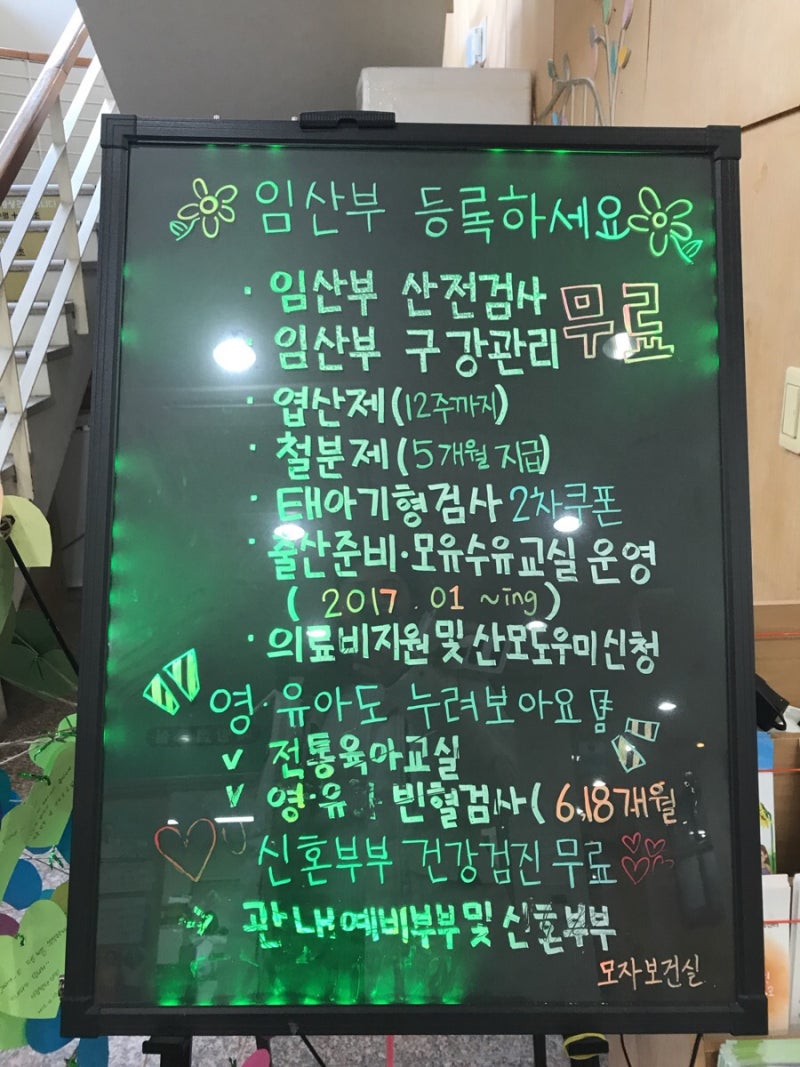 임산부 등록하세요
· 임산부 산전검사
임산부 구강관리
무료
· 엽산제(12주까지)
· 철분제(5개월 지급)
· 태아기형검사 2차쿠폰
· 출산준비·모유수유교실 운영
( 2017. 01 ~ing )
· 의료비지원 및 산모도우미신청
영·유아도 누려보아요!!
v 전통육아교실
v 영·유 빈혈검사( 6,18개월
신혼부부 건강검진 무료
→ 관내 예비부부 및 신혼부부
모자보건실